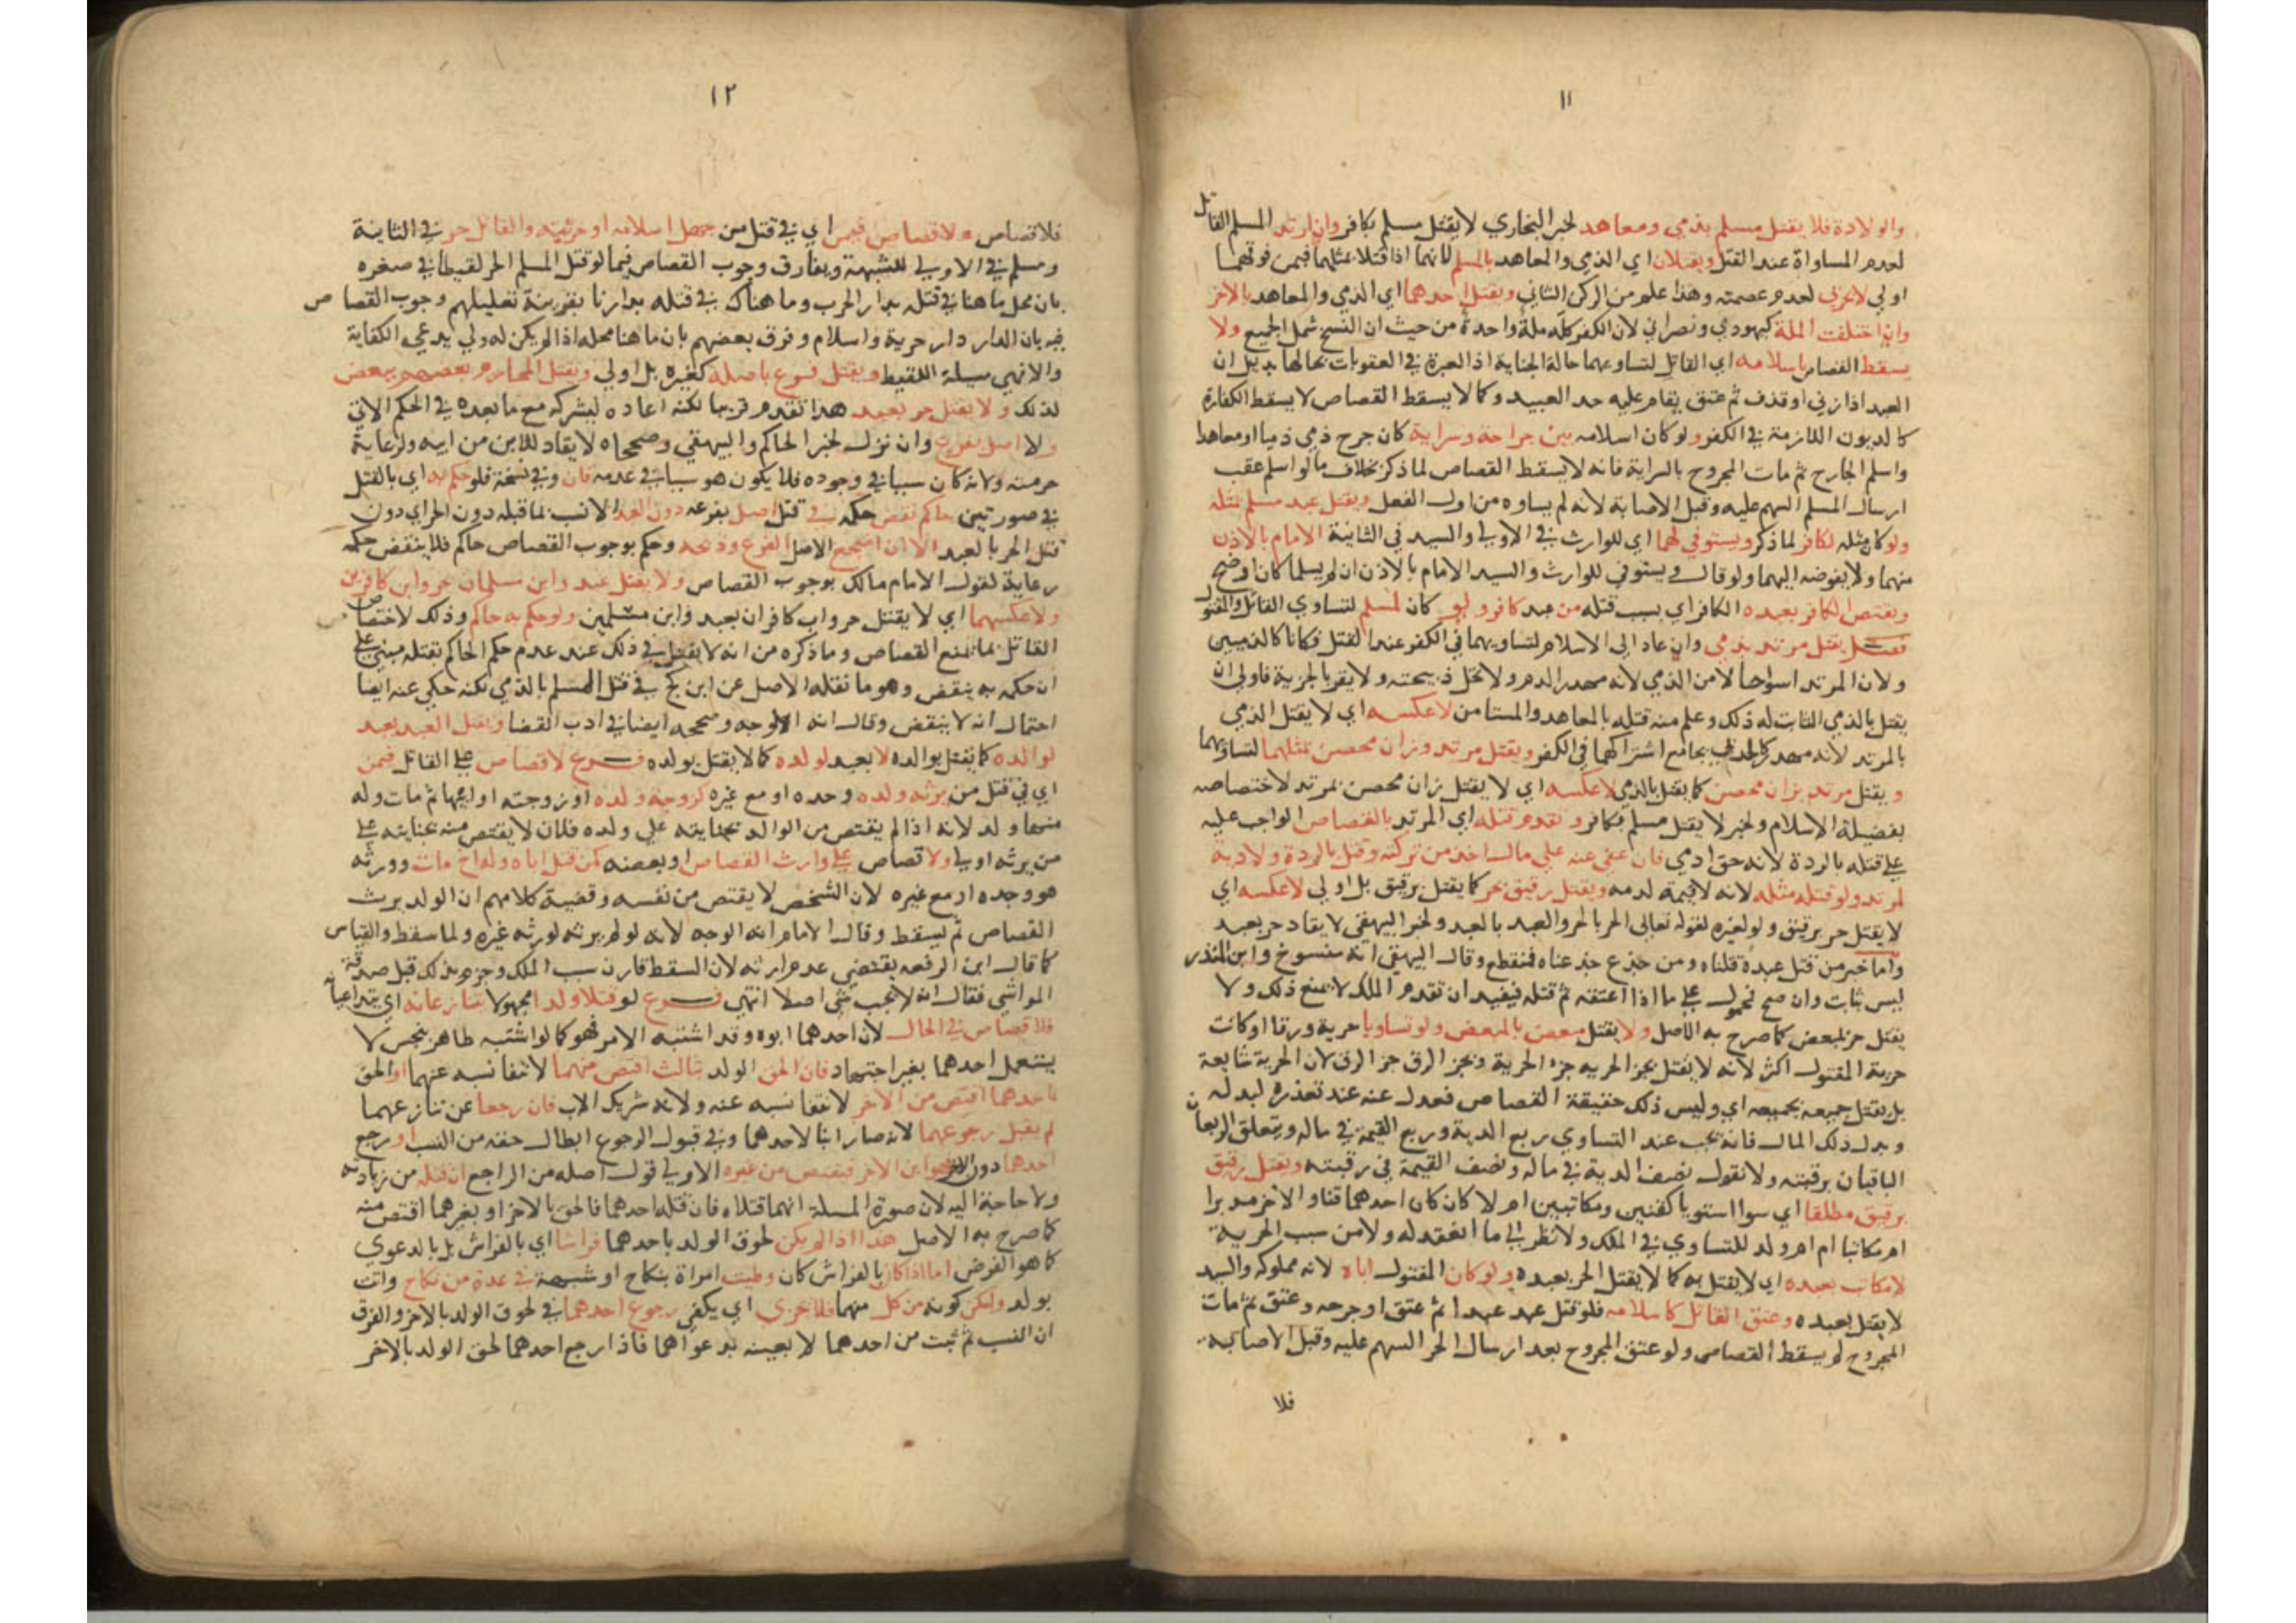 ١١
والولادة فلا يقتل مسلم بذمي ومعاهد لخبر البخاري لا يقتل مسلم بكافر وان ارتد المسلم القاتل
لعدم المساواة عند القتل ويقتلان اي الذمي والمعاهد بالمسلم لانهما اذا قتلا بمثلهما فيمن فوقهما
اولي لا بحربي لعدم عصمته وهذا علم من الركن الثاني ويقتل احدهما اي الذمي والمعاهد بالاخر
وان اختلفت الملة كيهودي ونصراني لان الكفر كله ملة واحدة من حيث ان النسخ شمل الجميع ولا
يسقط القصاص باسلامه اي القاتل لتساويهما حالة الجناية اذ العبرة في العقوبات بحالها بدليل ان
العبد اذا زني او قذف ثم عتق يقام عليه حد العبيد وكما لا يسقط القصاص لا يسقط الكفارة
كالديون اللازمة في الكفر ولو كان اسلامه بين جراحة وسراية كان جرح ذمي ذميا او معاهدا
واسلم الجارح ثم مات المجروح بالسراية فانه لا يسقط القصاص لما ذكر بخلاف ما لو اسلم عقب
ارسال المسلم السهم عليه وقبل الاصابة لانه لم يساوه من اول الفعل ويقتل عبد مسلم بمثله
ولو كان مثله لكافر لما ذكر ويستوفي لهما اي للوارث في الاولي والسيد في الثانية الامام بالاذن
منهما ولا يفوضه اليهما ولو قال ويستوفي للوارث والسيد الامام بالاذن ان لم يسلما كان اوضح
ويقتص الكافر بعبده الكافر اي بسبب قتله من عبد كافر ولو كان لمسلم لتساوي القاتل والمقتول
فصل يقتل مرتد بذمي وان عاد الي الاسلام لتساويهما في الكفر عند القتل فكانا كالذميين
ولان المرتد اسوا حالا من الذمي لانه مهدر الدم ولا تحل ذبيحته ولا يقر بالجزية فاولي ان
يقتل بالذمي الثابت له ذلك وعلم منه قتله بالمعاهد والمستامن لا عكسه اي لا يقتل الذمي
بالمرتد لانه مهدر كالحربي بجامع اشتراكهما في الكفر ويقتل مرتد وزان محصن بمثلهما لتساويهما
ويقتل مرتد بزان محصن كما يقتل بالذمي لا عكسه اي لا يقتل بزان محصن بمرتد لاختصاصه
بفضيلة الاسلام ولخبر لا يقتل مسلم بكافر وتقدم قتله اي المرتد بالقصاص الواجب عليه
علي قتله بالردة لانه حق ادمي فان عفي عنه علي مال اخذ من تركته وقتل بالردة ولا دية
لمرتد ولو قتله مثله لانه لا قيمة لدمه ويقتل رقيق بحر كما يقتل برقيق بل اولي لا عكسه اي
لا يقتل حر برقيق ولو لغيره لقوله تعالي الحر بالحر والعبد بالعبد ولخبر البيهقي لا يقاد حر بعبد
واما خبر من قتل عبده قتلناه ومن جذع جذعناه فمنقطع وقال البيهقي انه منسوخ وابن المنذر
ليس بثابت وان صح محمول علي ما اذا اعتقه ثم قتله فيفيد ان تقدم الملك لا يمنع ذلك ولا
يقتل حر بمبعض كما صرح به الاصل ولا يقتل مبعض بالمبعض ولو تساويا حرية ورقا او كانت
حرية المقتول اكثر لانه لا يقتل بجزء الحرية جزء الحرية وبجزء الرق جزء الرق لان الحرية شايعة
بل يقتل جميعه بجميعه اي وليس ذلك حقيقة القصاص فعدل عنه عند تعذره لبدله
وبدل ذلك المال فانه يجب عند التساوي ربع الدية وربع القيمة في ماله ويتعلق الربعان
الباقيان برقبته ولا نقول نصف الدية في ماله ونصف القيمة في رقبته ويقتل رقيق
برقيق مطلقا اي سوا استويا كقنين ومكاتبين ام لا كان كان احدهما قنا والاخر مدبرا
ام مكاتبا ام ام ولد للتساوي في الملك ولا نظر الي ما انعقد له ولا من سبب الحرية
لا مكاتب بعبده اي لا يقتل به كما لا يقتل الحر بعبده ولو كان المقتول اباه لانه مملوكه والسيد
لا يقتل بعبده وعتق القاتل كاسلامه فلو قتل عبد عبدا ثم عتق او جرحه وعتق ثم مات
المجروح لم يسقط القصاص ولو عتق المجروح بعد ارسال الحر السهم عليه وقبل الاصابة
فلا
١٢
فلا قصاص ولا قصاص فيمن اي في قتل من جهل اسلامه او حريته والقاتل حر في الثانية
ومسلم في الاولي للشبهة ويفارق وجوب القصاص فيما لو قتل المسلم الحر لقيطا في صغره
بان محل ما هنا في قتله بدار الحرب وما هناك في قتله بدارنا بقرينة تعليلهم وجوب القصاص
فيه بان الدار دار حرية واسلام وفرق بعضهم بان ما هنا محله اذا لم يكن له ولي يدعي الكفاية
والا فهي مسيلة اللقيط ويقتل فرع باصله كغيره بل اولي ويقتل المحارم بعضهم ببعض
لذلك ولا يقتل حر بعبد هذا تقدم قريبا لكنه اعاده ليشركه مع ما بعده في الحكم الاتي
ولا اصل بفرع وان نزل لخبر الحاكم والبيهقي وصححاه لا يقاد للابن من ابيه ولرعاية
حرمته ولانه كان سببا في وجوده فلا يكون هو سببا في عدمه فان وفي نسخة فلو حكم به اي بالقتل
في صورتين حاكم نقض حكمه في قتل اصل بفرعه دون العبد الانسب بما قبله دون الحر اي دون
قتل الحر بالعبد الا ان اضجع الاصل الفرع وذبحه وحكم بوجوب القصاص حاكم فلا ينقض حكمه
رعاية لقول الامام مالك بوجوب القصاص ولا يقتل عبد وابن مسلمان بحر وابن كافرين
ولا عكسهما اي لا يقتل حر واب كافران بعبد وابن مسلمين ولو حكم به حاكم وذلك لاختصاص
القاتل بما يمنع القصاص وما ذكره من انه لا يقتل في ذلك عند عدم حكم الحاكم بقتله مبني علي
ان حكمه به ينقض وهو ما نقله الاصل عن ابن كج في قتل المسلم بالذمي لكنه حكي عنه ايضا
احتمال انه لا ينقض وقال انه الاوجه وصححه ايضا في ادب القضا ويقتل العبد بعبد
لوالده كما يقتل بوالده لا بعبد لولده كما لا يقتل بولده فرع لا قصاص علي القاتل فيمن
اي في قتل من يرثه ولده وحده او مع غيره كزوجة ولده او زوجته او ابيها ثم مات وله
منها ولد لانه اذا لم يقتص من الوالد بجنايته علي ولده فلان لا يقتص منه بجنايته علي
من يرثه اولي ولا قصاص علي وارث القصاص او بعضه كمن قتل اباه وله اخ مات وورثه
هو وحده او مع غيره لان الشخص لا يقتص من نفسه وقضية كلامهم ان الولد يرث
القصاص ثم يسقط وقال الامام انه الوجه لانه لو لم يرثه لورثه غيره ولما سقط والقياس
كما قال ابن الرفعه يقتضي عدم ارثه لان المسقط قارن سبب الملك وجزم بذلك قبل صدقة
المواشي فقال انه لا يجب شي اصلا انتهي فرع لو قتلا ولدا مجهولا تنازعانه اي يتداعيانه
فلا قصاص في الحال لان احدهما ابوه وقد اشتبه الامر فهو كما لو اشتبه طاهر بنجس لا
يستعمل احدهما بغير اجتهاد فان الحق الولد بثالث اقتص منهما لانتفا نسبه عنهما او الحق
باحدهما اقتص من الاخر لانتفا نسبه عنه ولانه شريك الاب فان رجعا عن تنازعهما
لم يقبل رجوعهما لانه صار ابنا لاحدهما وفي قبول الرجوع ابطال حقه من النسب او رجع
احدهما دون الاخر فهو ابن الاخر فيقتص من غيره الاولي قول اصله من الراجع ان قتله من زيادته
ولا حاجة اليه لان صورة المسلة انهما قتلاه فان قتله احدهما فالحق بالاخر او بغيرهما اقتص منه
كما صرح به الاصل هذا اذا لم يكن لحوق الولد باحدهما فراشا اي بالفراش بل بالدعوي
كما هو الفرض اما اذا كان بالفراش كان وطيت امراة بنكاح او شبهة في عدة من نكاح واتت
بولد وامكن كونه من كل منهما فلا يجزي اي يكفي رجوع احدهما في لحوق الولد بالاخر والفرق
ان النسب ثم ثبت من احدهما لا بعينه بدعواهما فاذا رجع احدهما لحق الولد بالاخر